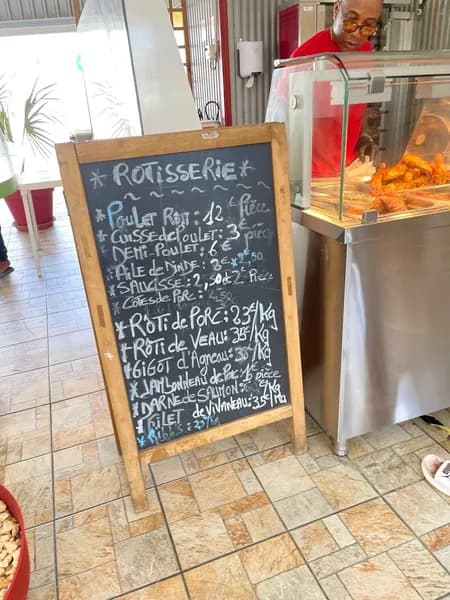 * ROTISSERIE *
~ ~ ~ ~ ~ ~ ~
* POULET ROTI : 12 € Pièce
* CUISSE de POULET : 3€ pièce
* DEMI-POULET : 6 €
* AILE de DINDE : 3€
* SAUCISSE : 2,50 Pièce
* COTES de PORC : 4,50
* RÔTI de PORC : 23€/Kg
* RÔTI de VEAU : 35€/Kg
* GIGOT d'Agneau : €/Kg
* JAMBONNEAU de PORC : pièce
* DARNE de SAUMON : €/Kg
* FILET de VIVANEAU : 35€/Kg